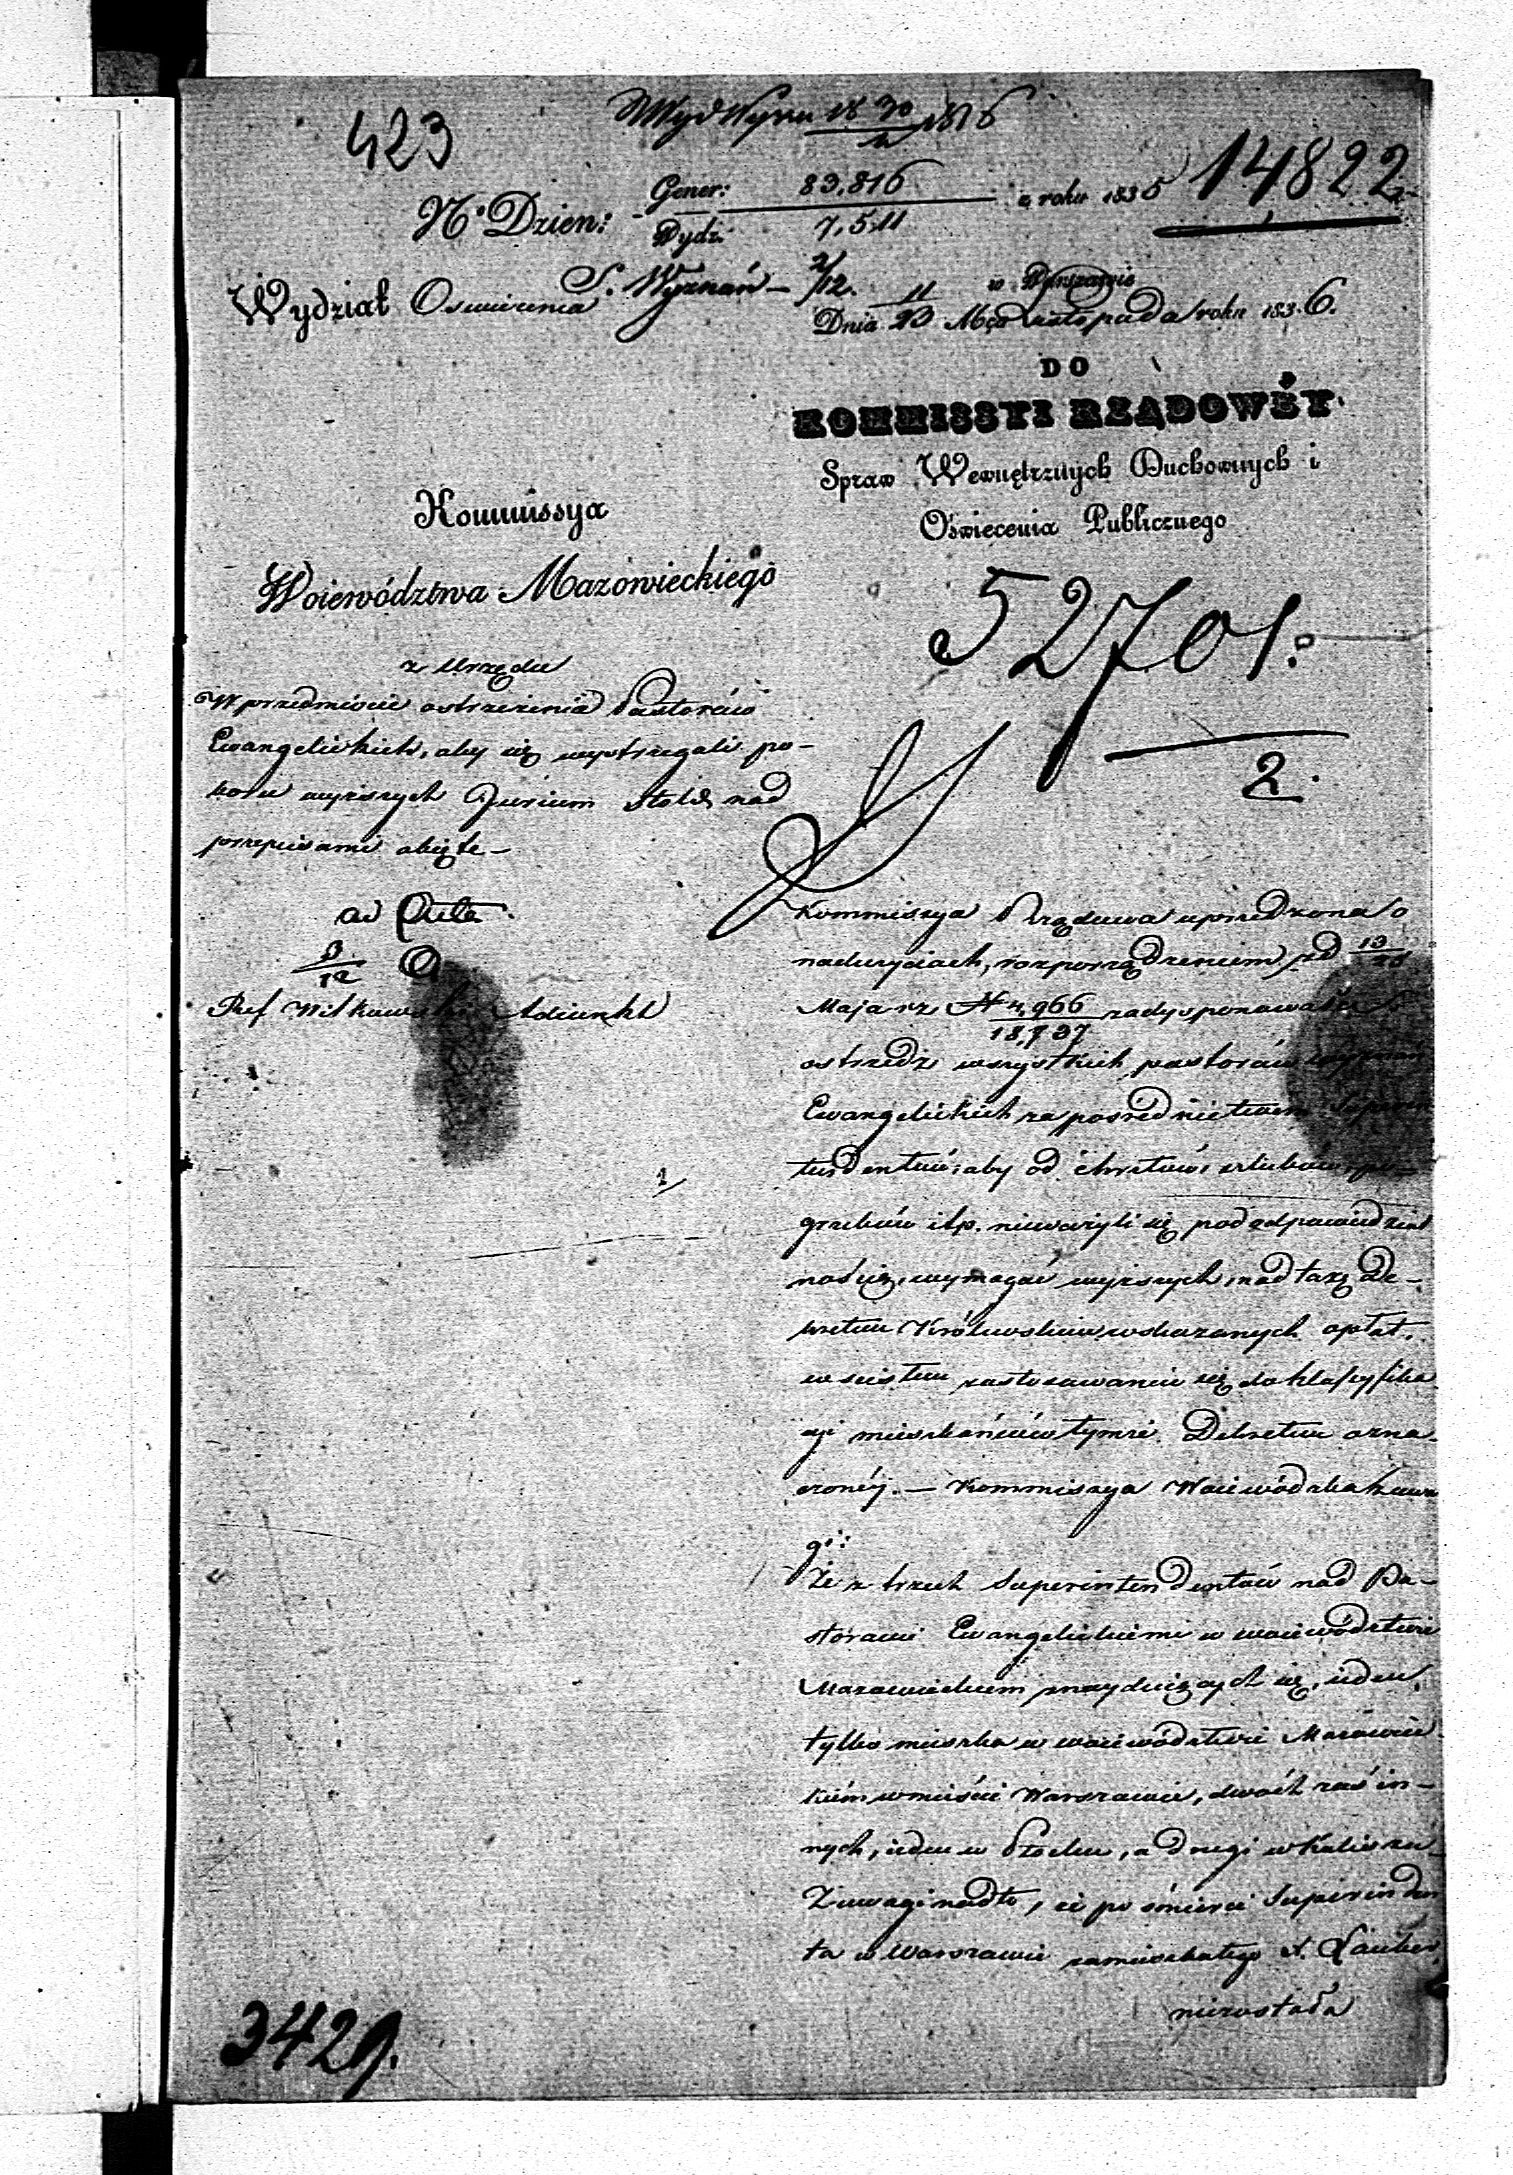 423
14822
N° Dzien: Gener: 83,816 z roku 1835
Wydz. 7,511
Wydział Oswiecenia
S. Wyznań – 2/12.
w Warszawie
Dnia 11/23 Mca Listopada roku 1836.
DO
KOMMISSYI RZĄDOWÉY
Spraw Wewnętrznych Duchownych i
Oświecenia Publicznego
Kommissya
Woiewództwa Mazowieckiego
52701.
2.
z Urzędu
W przedmiocie ostrzeżenia Pastorów
Ewangelickich, aby się wystrzegali po-
boru wyższych Jurium Stolae nad
przepisami obięte –
ad Acta.
3/12
Ref Witkowski Adiunkt
Kommissya Rządowa uprzedzona o
nadużyciach, rozporządzeniem pod 13/25
Maja rz N 4,966/18,737 zadysponowała
ostrzedz wszystkich pastorów wyznań
Ewangelickich za pośrednictwem Superin
tendentów, aby od chrztów, szlubów, po-
grzebów itp. nieważyli się pod odpowiedzial
nością, wymagać wyższych, nad taxą de-
kretem Królewskim wskazanych opłat,
w scisłem zastosowaniu się do klassyfika
cyi mieszkańców tymże Dekretem ozna-
czonéy. – Kommissya Woiewódzka zważa
że z trzech Superintendentów nad Pa-
storami Ewangelickiemi w województwie
Mazowieckiem znayduiących się, ieden,
tylko mieszka w woiewództwie Mazowiec
kiém w mieście Warszawie, dwóch zaś in-
nych, ieden w Płocku, a drugi w Kaliszu
Z uwagi nadto, że po śmierci Superinden
ta w Warszawie zamieszkałego X. Lauber
niezostała
3429.